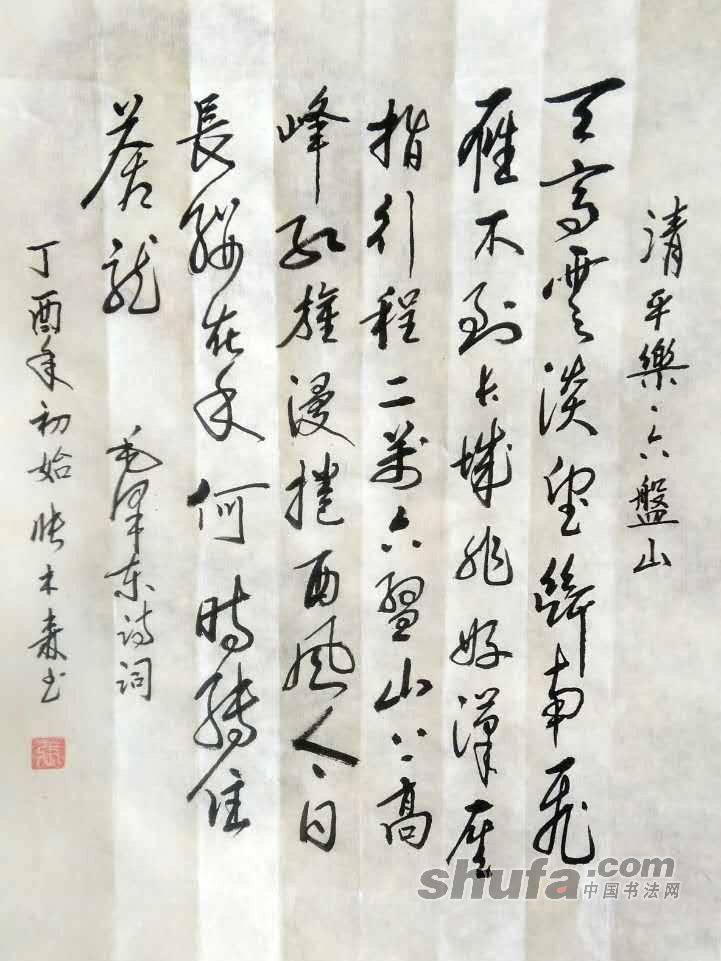 清平樂、六盤山
天高雲淡望斷南飛
雁不到长城非好漢屈
指行程二萬六盤山上高
峰红旗漫捲西風今日
長纓在手何時縛住
蒼龍
毛泽东诗词
丁酉年初始张木书
張
shufa.com
中国书法网